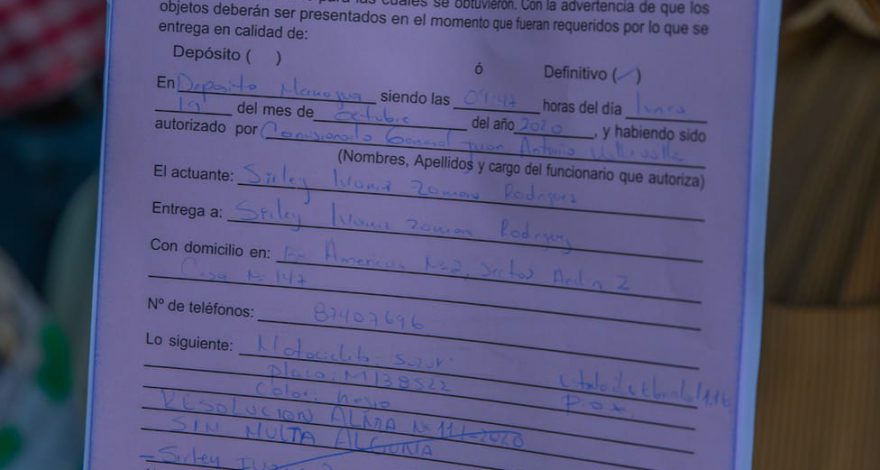 para las cuales se obtuvieron. Con la advertencia de que los
objetos deberán ser presentados en el momento que fueran requeridos por lo que se
entrega en calidad de:
Depósito ( ) ó Definitivo (✓)
En Deposito Managua siendo las 09:47 horas del día lunes
19 del mes de Octubre del año 2020, y habiendo sido
autorizado por Comisionado General Juan Antonio
(Nombres, Apellidos y cargo del funcionario que autoriza)
El actuante: Sirley Ivania Zamora Rodriguez
Entrega a: Sirley Ivania Zamora Rodriguez
Con domicilio en: Americas No 2, Sector
Casa No 147
Nº de teléfonos: 87407696
Lo siguiente: Motocicleta
placa: M138522
Color: negro
RESOLUCION ALMA No 111-2020
SIN MULTA ALGUNA
= Sirley